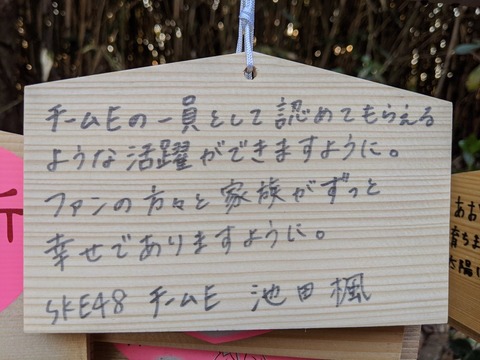 チームEの一員として認めてもらえる
ような活躍ができますように。
ファンの方々と家族がずっと
幸せでありますように。
SKE48 チームE 池田楓
あお
育ちま
太陽